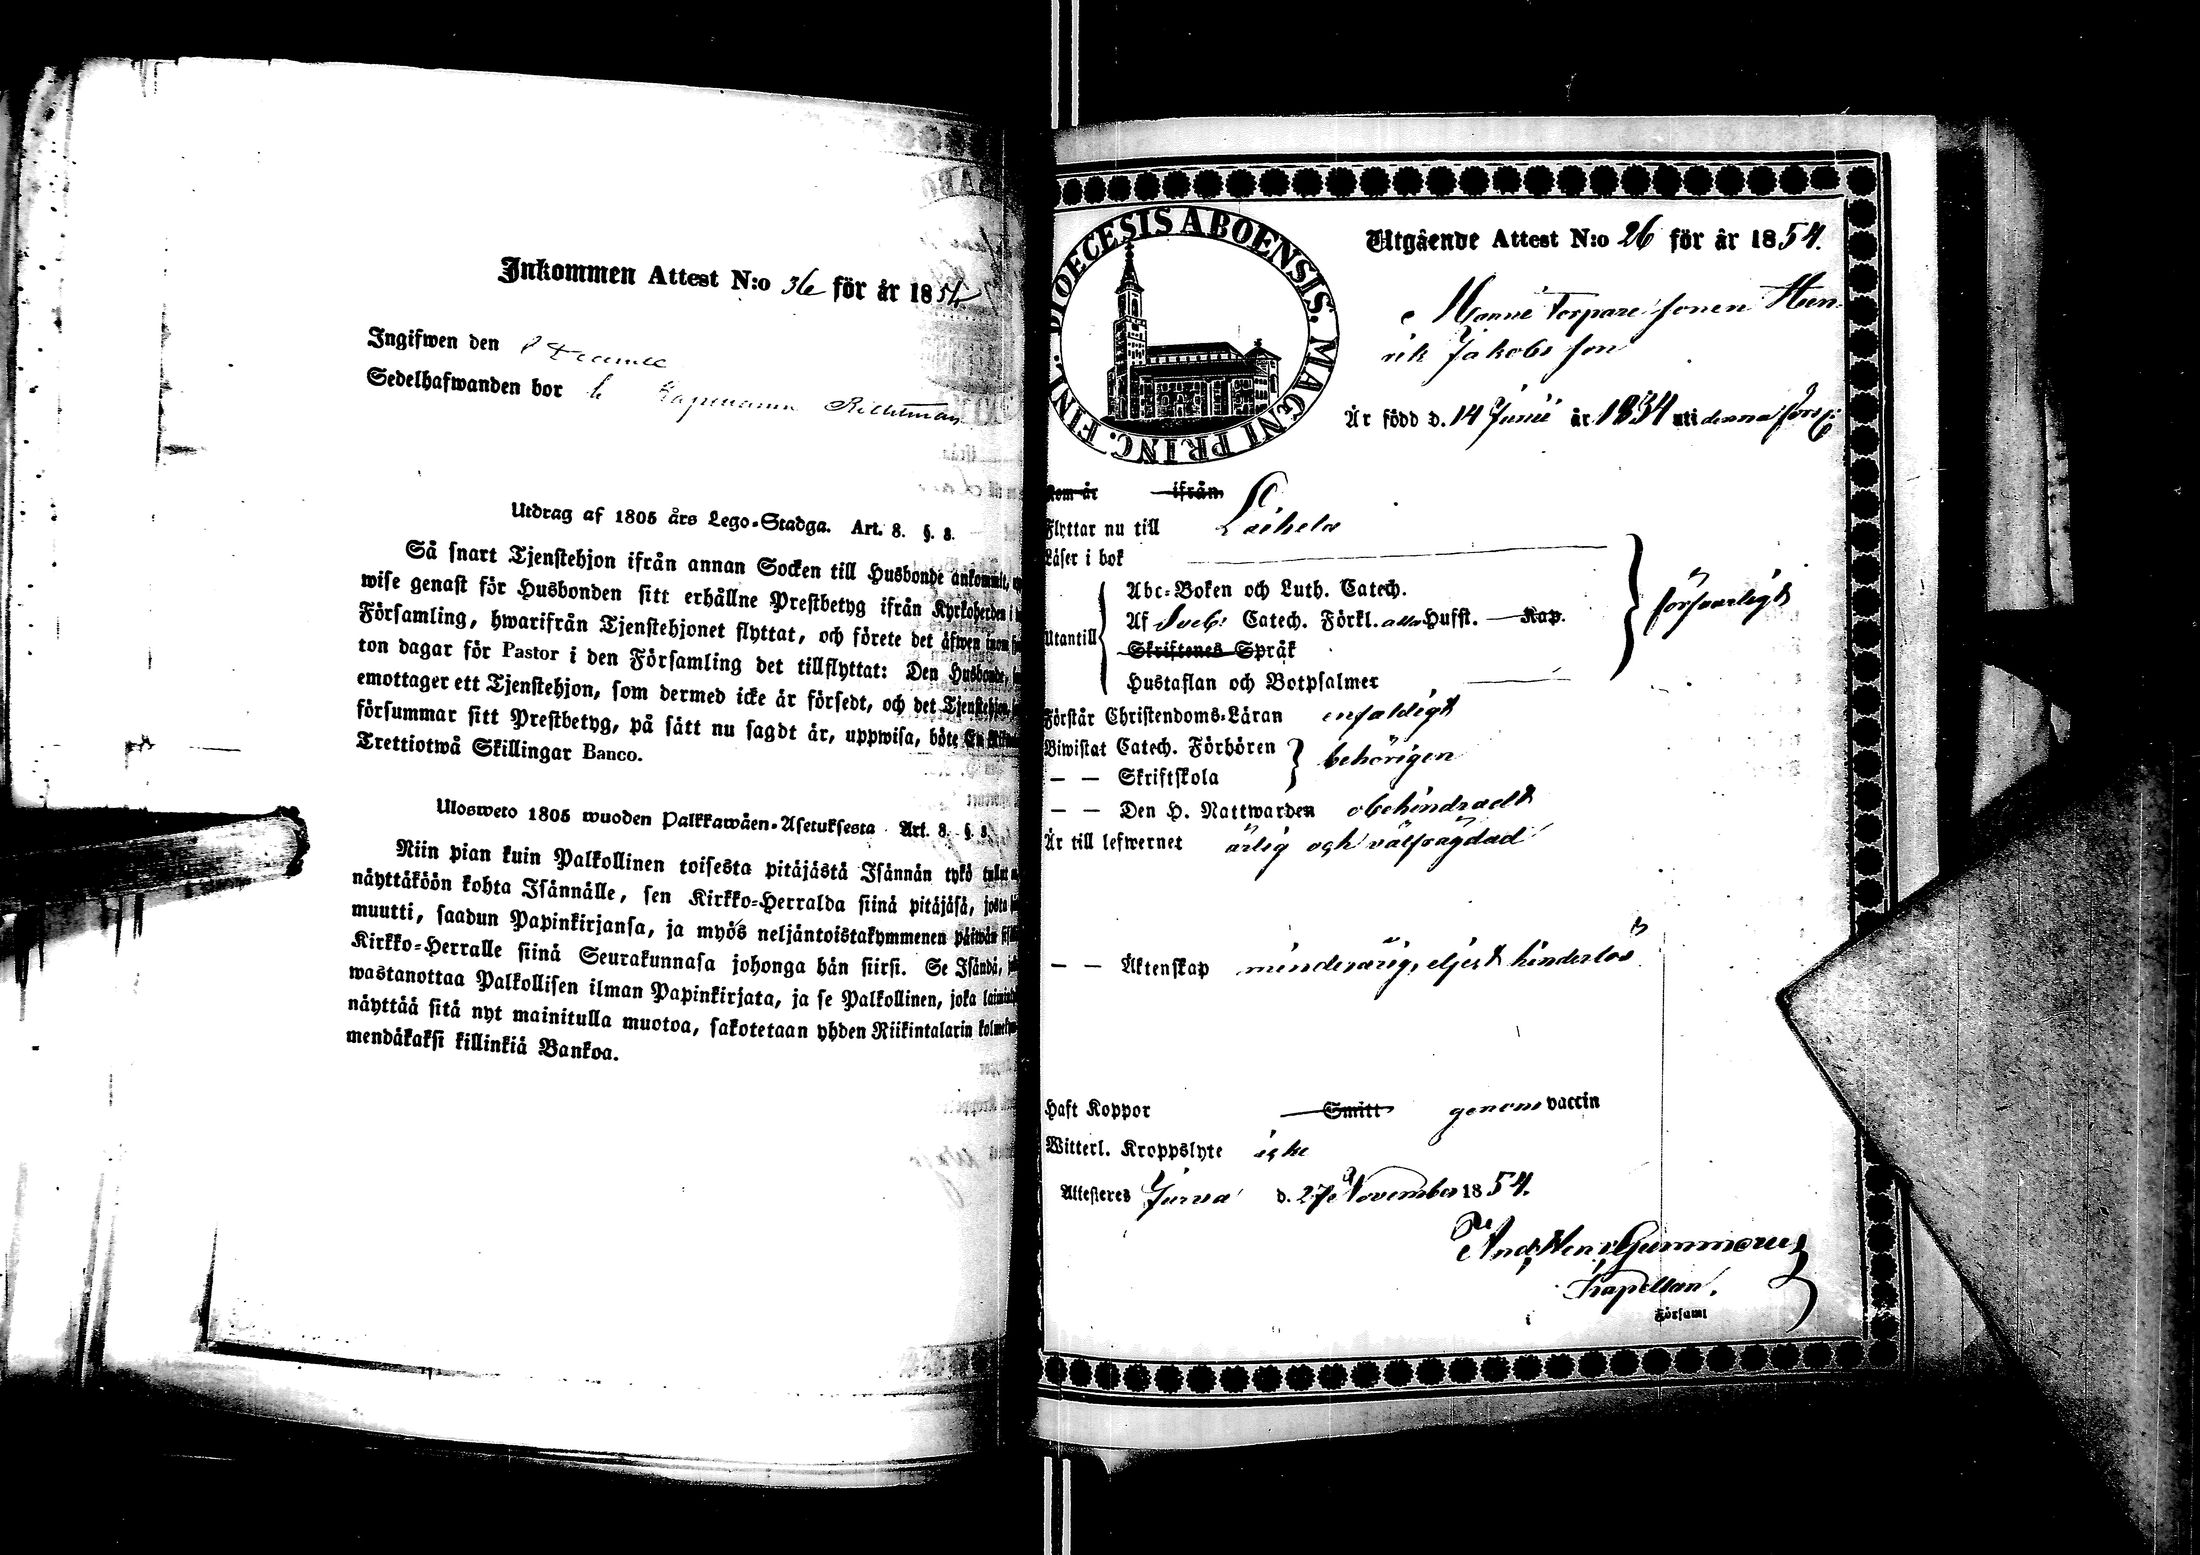 Inkommen Attest N:o 36 för år 1854
Ingifwen den
Sedelhafwanden bor
Utdrag af 1805 års Lego-Stadga. Art. 8. §. 8.
Så snart Tjenstehjon ifrån annan Socken till Husbonde ankommit,
wise genast för Husbonden sitt erhållne Prestbetyg ifrån Kyrkoherden i
Församling, hwarifrån Tjenstehjonet flyttat, och förete det äfwen inom
ton dagar för Pastor i den Församling det tillflyttat: Den Husbonde,
emottager ett Tjenstehjon, som dermed icke är försedt, och det Tjenstehjon,
försummar sitt Prestbetyg, på sätt nu sagdt är, uppwisa, böte En
Trettiotwå Skillingar Banco.
Ulosweto 1805 wuoden Palkkawäen-Asetuksesta Art. 8. §. 8.
Niin pian kuin Palkollinen toisesta pitäjästä Isännän tykö
näyttäköön kohta Isännälle, sen Kirkko-Herralda siinä pitäjäsä, josta
muutti, saadun Papinkirjansa, ja myös neljäntoistakymmenen päiwän
Kirkko-Herralle siinä Seurakunnasa johonga hän siirsi. Se Isändä,
wastanottaa Palkollisen ilman Papinkirjata, ja se Palkollinen, joka
näyttää sitä nyt mainitulla muotoa, sakotetaan yhden Riikintalarin
mendäkaksi killinkiä Bankoa.
DIOECESIS ABOENSIS. MAGNI PRINC. FINL.
Utgående Attest N:o 26 för år 1854.
Torpare sonen Hen-
rik Jakobsson
Är född d. 14 Junii år 1834 uti denna förs:
Kom år ifrån
Flyttar nu till Laihela
Läser i bok
Abc-Boken och Luth. Catech.
Utantill Af Sveb: Catech. Förkl. alla Hufst. Kap.
försvarligt
Skriftenes Språk
Hustaflan och Botpsalmer
Förstår Christendoms-Läran enfaldigt
Biwistat Catech. Förhören
behörigen
— — Skriftskola
— — Den H. Nattwarden obehindradt
Är till lefwernet ärlig och välfrägdad
— — Äktenskap minderårig, eljest hinderlös
Haft Koppor Smitt genom vaccin
Witterl. Kroppslyte icke
Attesteres Jurva d. 27 November 1854.
And. Henr. Gummerus
Kapellan.
i Församl